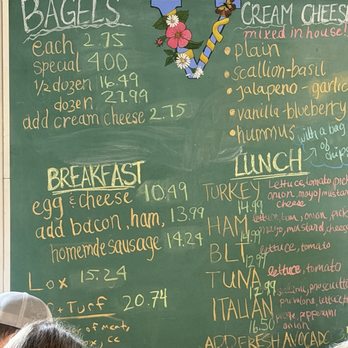 BAGELS
each 2.75
special 4.00
1/2 dozen 16.49
dozen 27.99
add cream cheese 2.75
CREAM CHEESE
mixed in house!
• plain
• scallion-basil
• jalapeno - garlic
• vanilla-blueberry
• hummus
with a bag
of chips
BREAKFAST
egg & cheese 10.49
add bacon, ham, 13.99
homemade sausage 14.24
LOX 15.24
Turf 20.74
LUNCH
TURKEY lettuce, tomato, pick
onion, mayo, mustard
cheese
14.99
HAM lettuce, tom, onion, pick
mayo, mustard, cheese
14.99
BLT lettuce, tomato
12.99
TUNA lettuce, tomato
12.99
ITALIAN salami, prosciutto
provolone, lettuce
pepperoni
onion
16.50
ADD FRESH AVOCADO